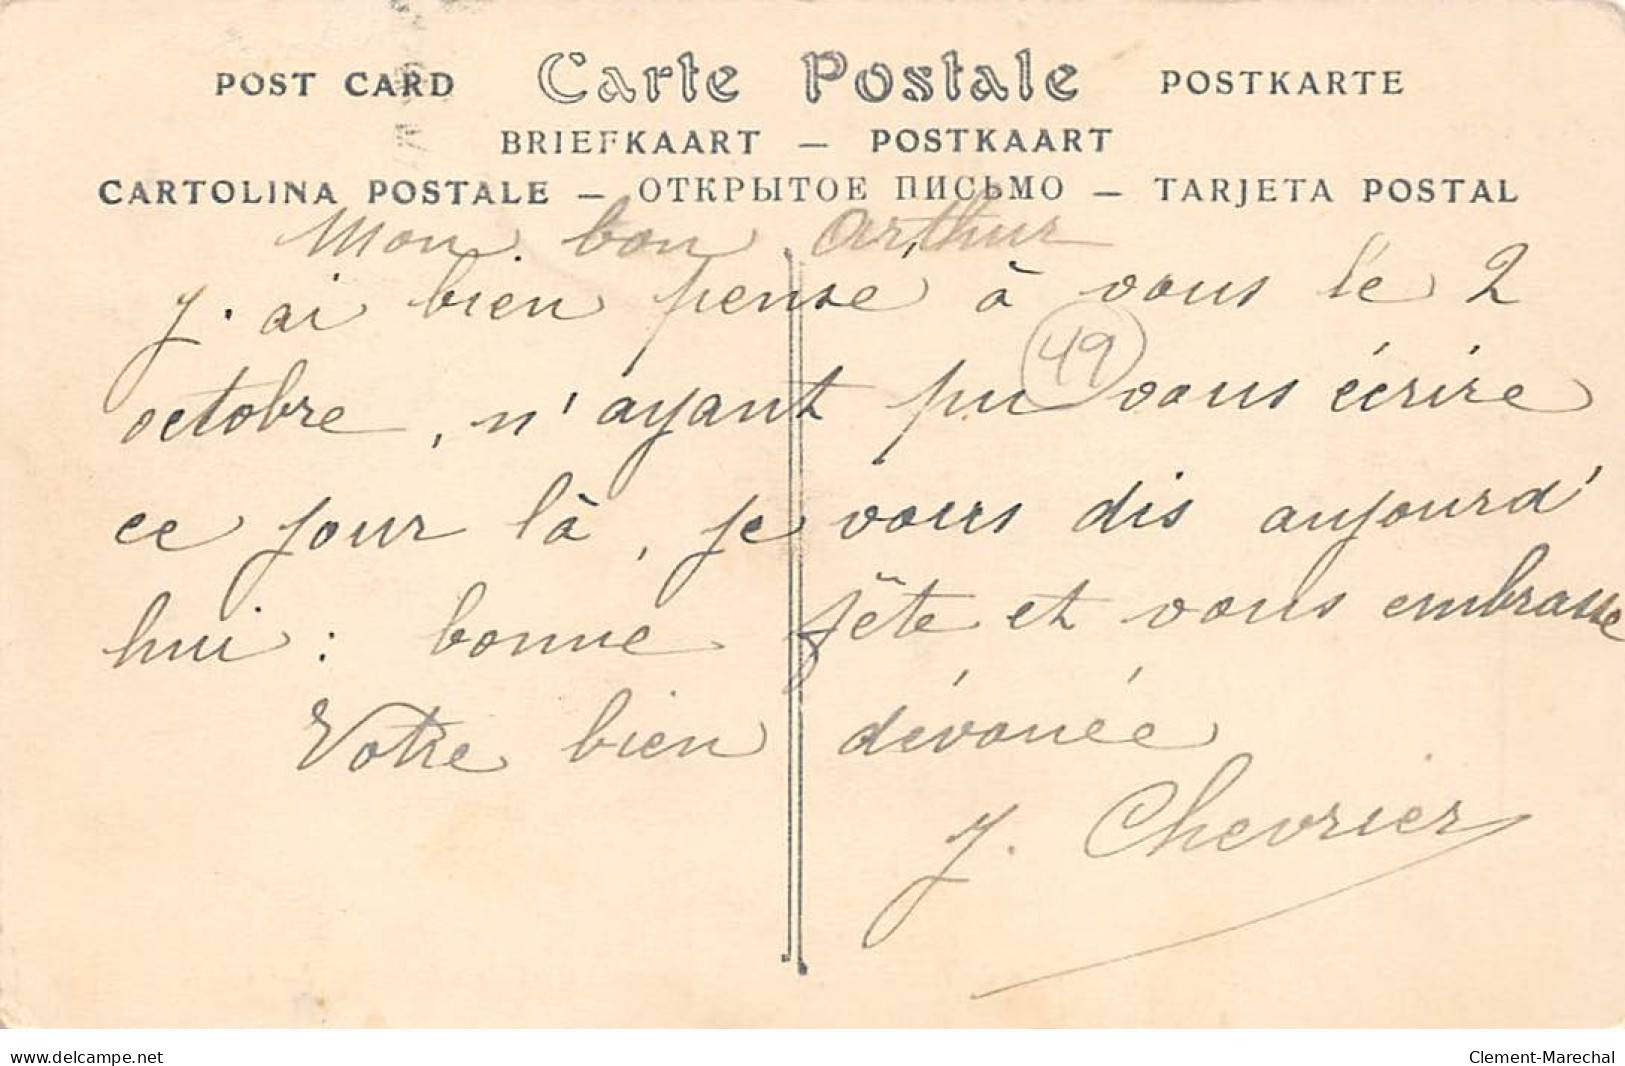 POST CARD Carte Postale POSTKARTE
BRIEFKAART — POSTKAART
CARTOLINA POSTALE — ОТКРЫТОЕ ПИСЬМО — TARJETA POSTAL
Mon bon Arthur
J'ai bien pensé à vous le 2
octobre, n'ayant pu vous écrire
49
ce jour là, je vous dis aujourd'
hui : bonne fête et vous embrasse
Votre bien dévouée
J. Chevrier
www.delcampe.net
Clement-Marechal